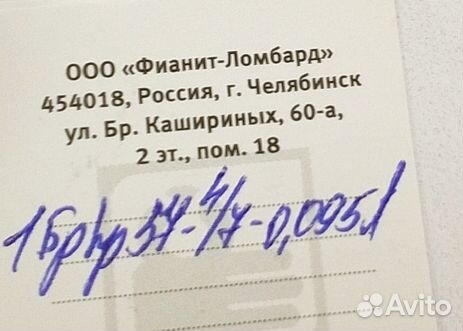 ООО «Фианит-Ломбард»
454018, Россия, г. Челябинск
ул. Бр. Кашириных, 60-а,
2 эт., пом. 18
1 Бр Кр 57-4/7-0,095
Avito